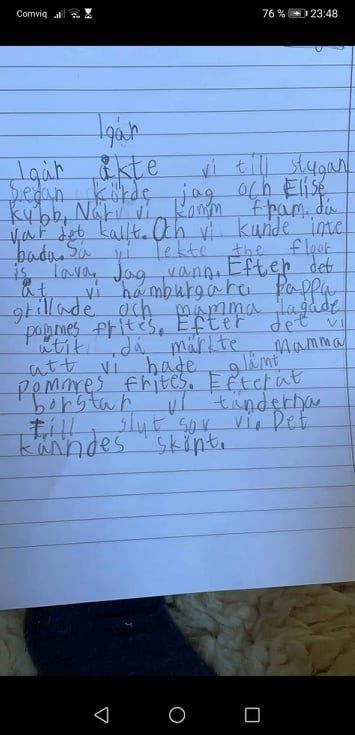 Comviq 76 % 23:48
Igår
Igår åkte vi till stugan
Segan körde jag och Elise
Kubb. När vi komm fram. då
var det kallt. Och vi kunde inte
bada. Så vi lekte the floor
is lava. Jag vann. Efter det
åt vi hamburgare. Pappa
grillade och mamma lagade
pommes frites. Efter det vi
ätit då märkte Mamma
att vi hade glämt
pommres frites. Efteråt
borstar vi tänderna
till slut sov vi. Det
känndes skönt.